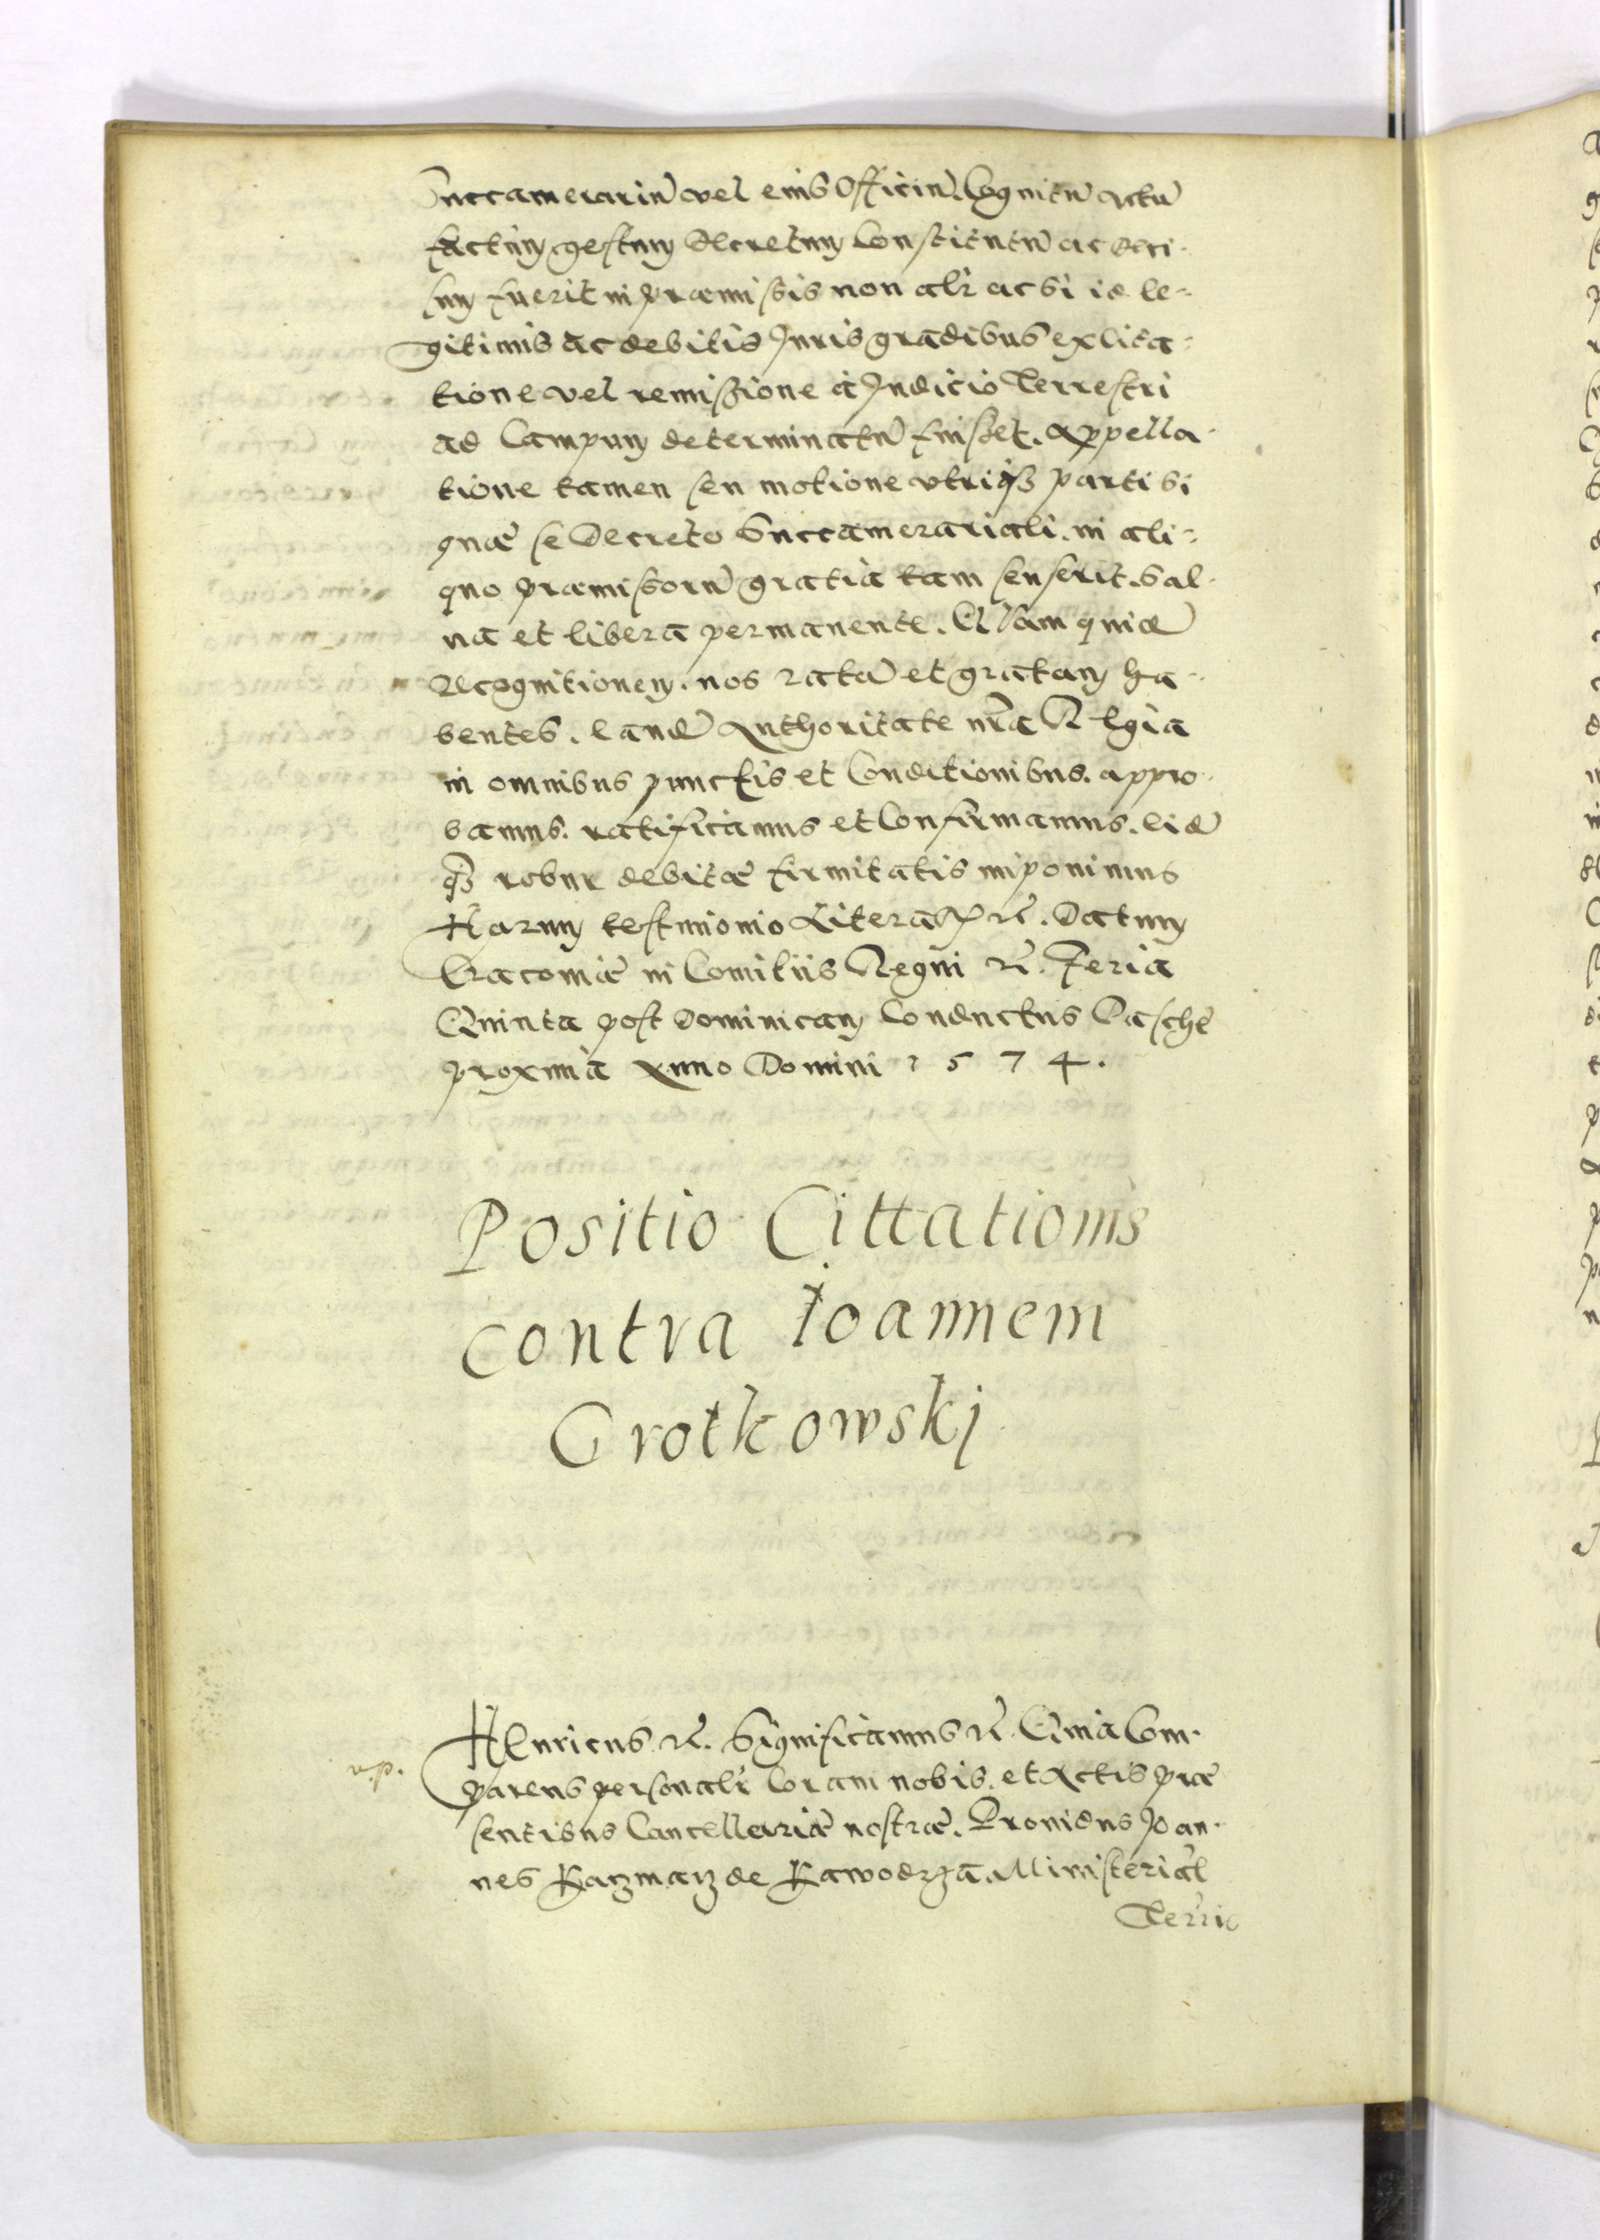 Succamerariu vel eius Officiu. Cognitu actu
factum gestum decretum Constitutu ac deci-
sum fuerit in præmissis non alr ac si id le=
gitimis ac debitis Juris gradibus ex cita=
tione vel remissione à Judicio Terrestri
ad Campum determinatu fuisset. Appella-
tione tamen seu motione utriq3 parti si
quæ se Decreto Succamerariali. in ali=
quo præmissoru gratiatam senserit. Sal-
va et libera permanente. Quam quid
recognitionem. nos rata et gratam ha-
bentes. eand Authoritate nra Regia
in omnibus punctis et Conditionibus. appro-
bamus. ratificamus et Confirmamus. eid
q3 robur debitæ firmitatis imponimus
Harum testimonio Literar etc. Datum
Cracoviæ in Comitiis Regni etc. Feria
Quinta post Dominicam Conductus Pasche
proxima Anno Domini 1574.
Positio Cittationis
contra Joannem
Grotkowskj
Henricus etc. Significamus etc. Quia Com-
v.p.
parens personalr Coram nobis. et Actis præ
sentibus Cancellariæ nostræ. Providus Joan-
nes Kaczmarz de Kawodrza Ministerial
Terrie